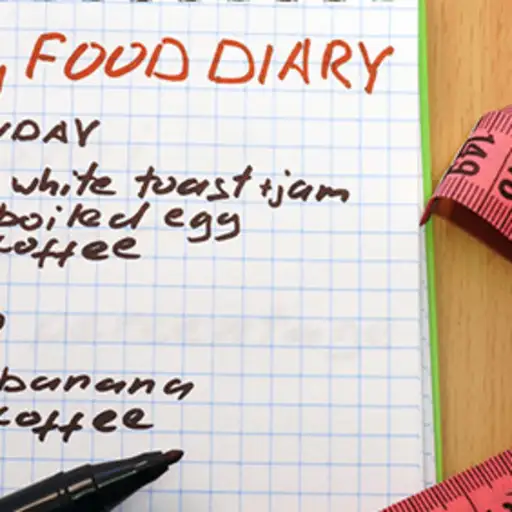 FOOD DIARY
white toast + jam
boiled egg
coffee
banana
coffee
149